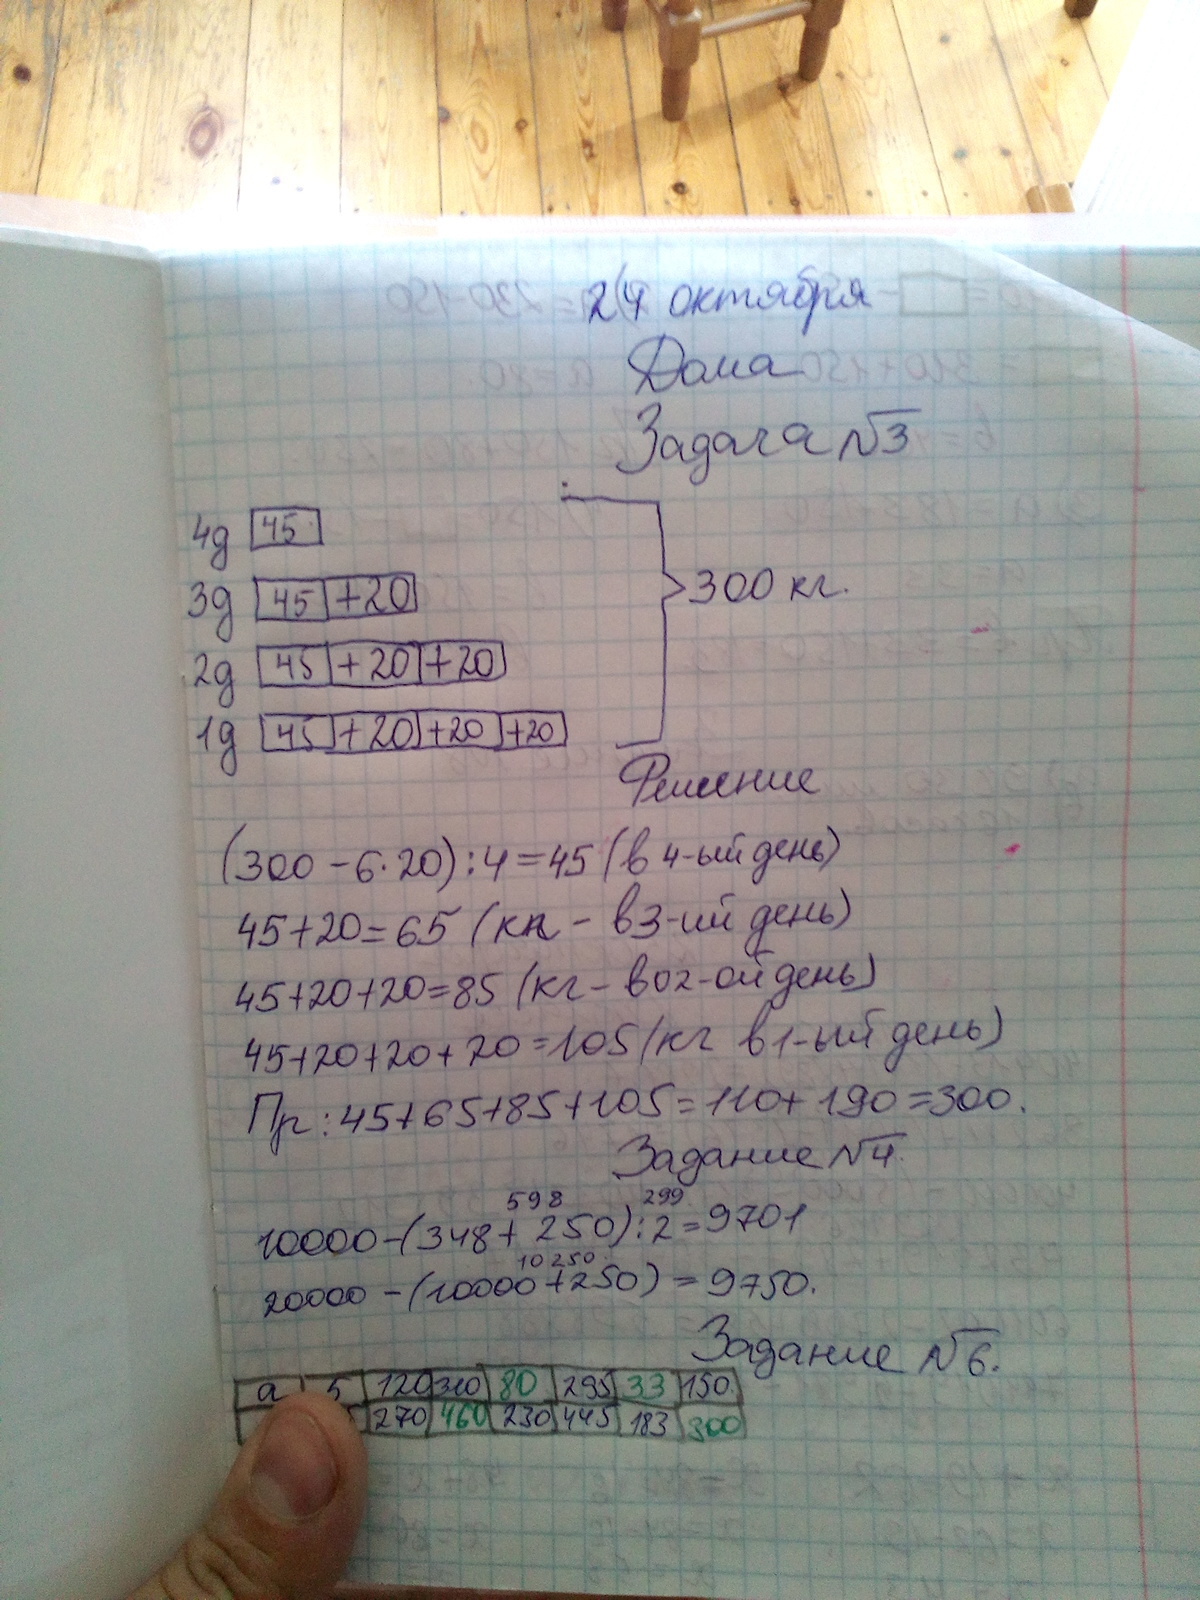 24 октября
Дома
Задача №3
4д 45
3д 45 +20
2д 45 +20 +20
1д 45 +20 +20 +20
300 кг.
Решение
(300 - 6·20):4=45 (в 4-ый день)
45+20=65 (кг - в 3-ий день)
45+20+20=85 (кг - во 2-ой день)
45+20+20+20=105 (кг в 1-ый день)
Пр: 45+65+85+105=110+190=300.
Задание №4.
598 299
10000-(348+250):2=9701
10250
20000-(10000+250)=9750.
Задание №6.
а 5 120 310 80 295 33 150
270 460 230 445 183 300